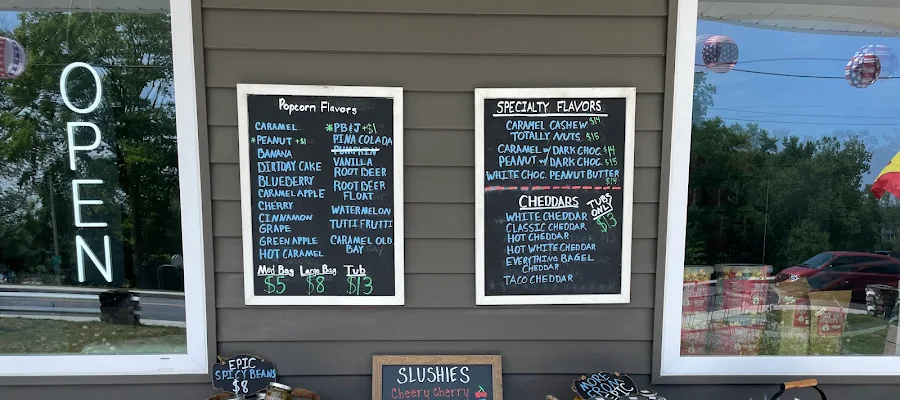 OPEN
Popcorn Flavors
CARAMEL
*PEANUT +$1
BANANA
DIRTDAY CAKE
BLUEBERRY
CARAMEL APPLE
CHERRY
CINNAMON
GRAPE
GREEN APPLE
HOT CARAMEL
*PB&J +$1
PINA COLADA
PUMPKIN
VANILLA
ROOT BEER
ROOT BEER
FLOAT
WATERMELON
TUTTI FRUTTI
CARAMEL OLD
BAY
Med Bag Large Bag Tub
$5 $8 $13
SPECIALTY FLAVORS
CARAMEL CASHEW $14
TOTALLY NUTS $15
CARAMEL w/ DARK CHOC. $14
PEANUT w/ DARK CHOC. $15
WHITE CHOC. PEANUT BUTTER
$14
CHEDDARS
TUBS
ONLY!
$13
WHITE CHEDDAR
CLASSIC CHEDDAR
HOT CHEDDAR
HOT WHITE CHEDDAR
EVERYTHING BAGEL
CHEDDAR
TACO CHEDDAR
EPIC
SPICY BEANS
$8
SLUSHIES
Cheery Cherry
MORE
FROM
EPIC